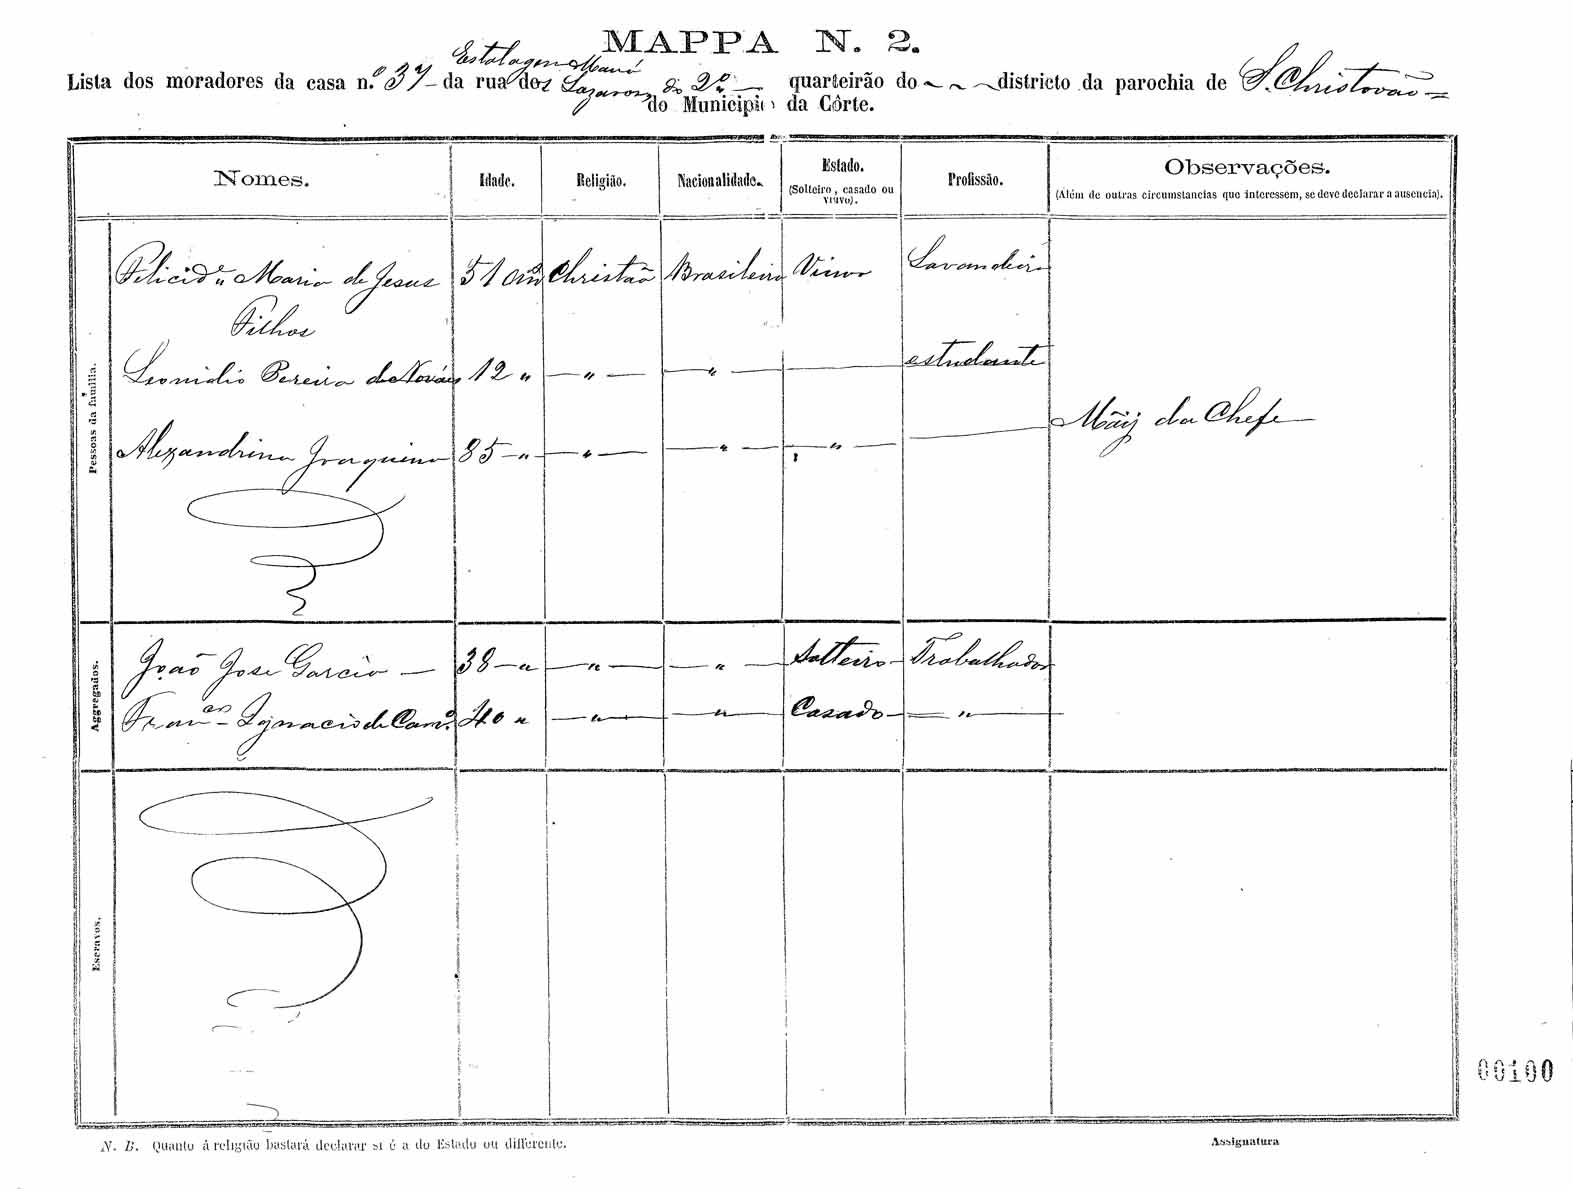 MAPPA N. 2.
Estalagem Mauá
Lista dos moradores da casa n.º 37 da rua dos Lazaros do 2º quarteirão do districto da parochia de S. Christovão
do Municipio da Côrte.
Nomes. Idade. Religião. Nacionalidade. Estado. Profissão. Observações.
(Solteiro, casado ou viuvo). (Além de outras circumstancias que interessem, se deve declarar a ausencia).
Pessoas da familia.
Felicid.e Maria de Jesus 51 an Christão Brasileira Viuva Lavandeira
Filhos
Leonidio Pereira de Nováes 12 " — " — — " — — estudante
Mãi da Chefe
Alexandrina Joaquina 85 — " — — " — — " — — " — —
Aggregados.
João Jose Garcia — 38 — " — " — — " — Solteiro — Trabalhador
Fran.co Ignacio de Cam.o 40 " — " — — " — Casado — " —
Escravos.
00100
N. B. Quanto á religião bastará declarar si é a do Estado ou differente.
Assignatura